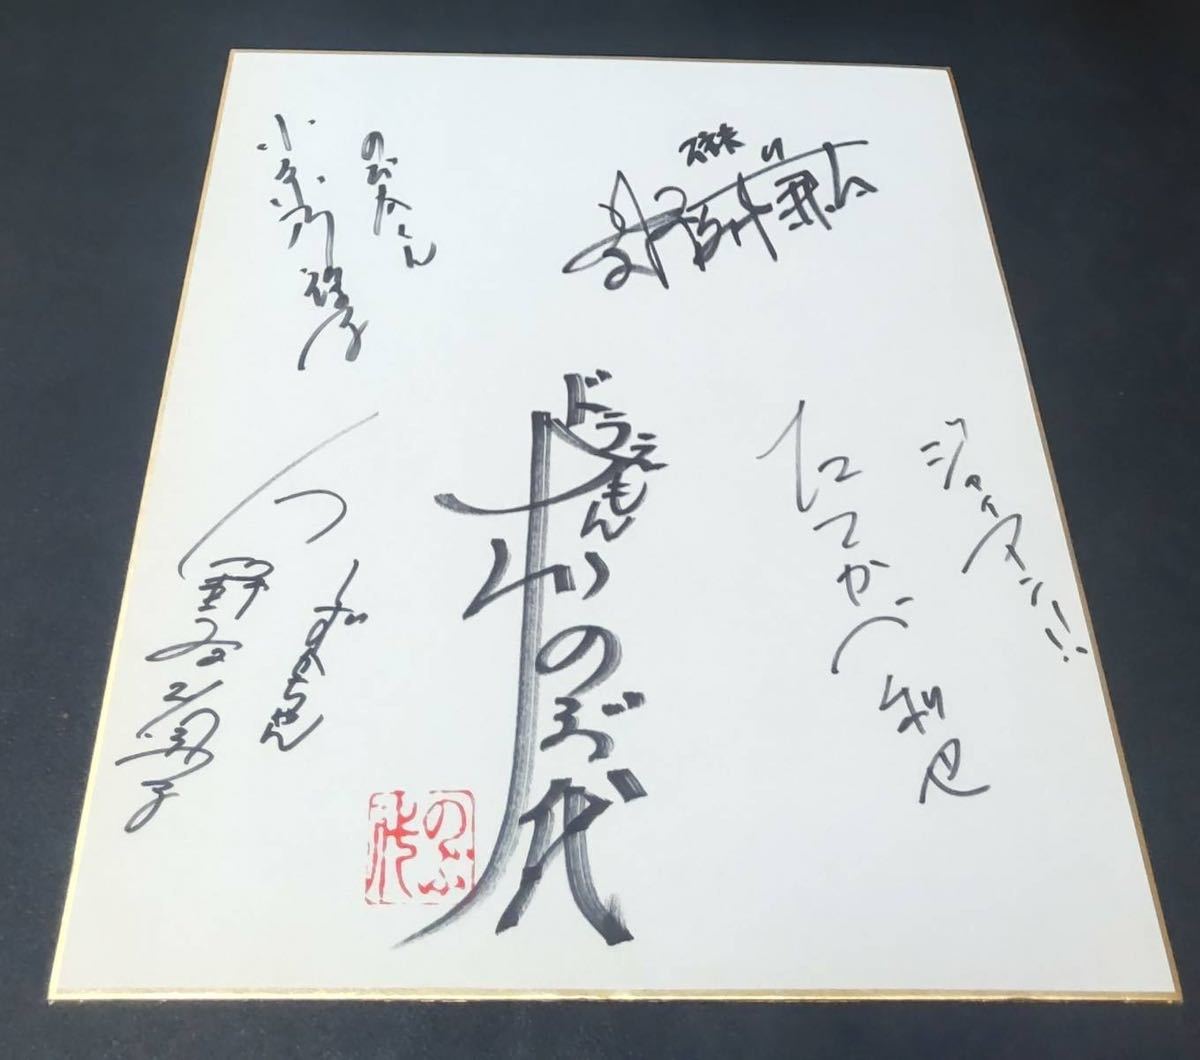 ジャイアン!!
たてかべ和也
ドラえもん
大山のぶ代
のぶ代
のび太くん
小原乃梨子
しずかちゃん
野村道子